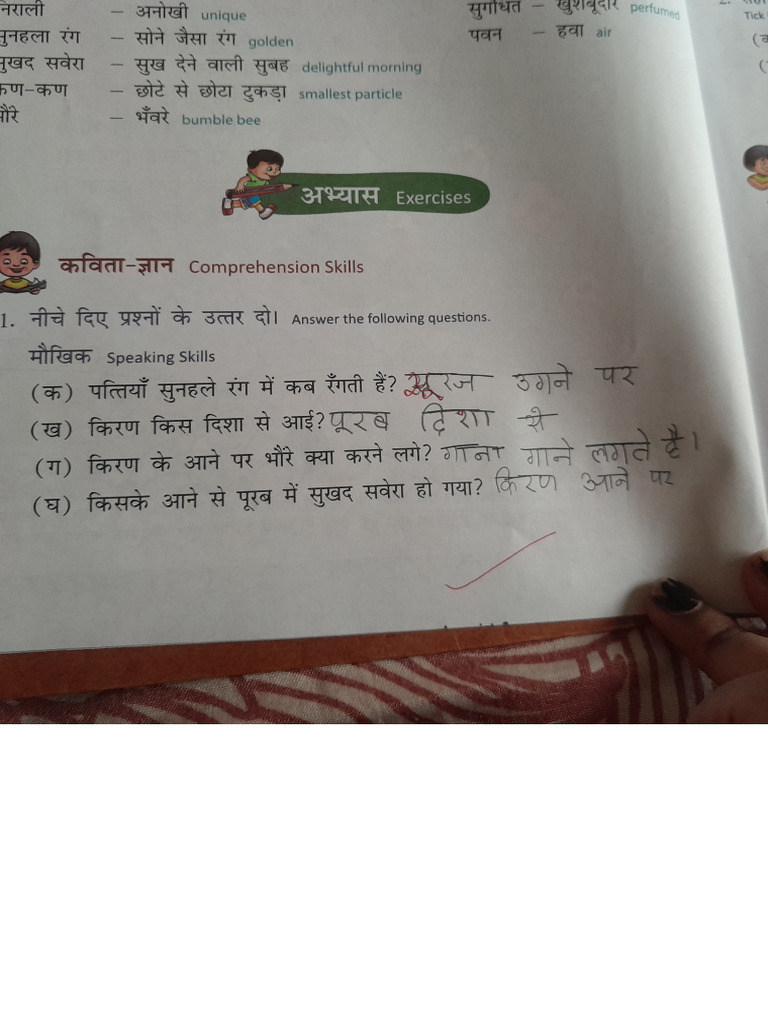 – अनोखी unique
रंग – सोने जैसा रंग golden
सवेरा – सुख देने वाली सुबह delightful morning
कण-कण – छोटे से छोटा टुकड़ा smallest particle
– भँवरे bumble bee
सुगंधित – खुशबूदार perfumed
पवन – हवा air
Tick
अभ्यास Exercises
कविता-ज्ञान Comprehension Skills
1. नीचे दिए प्रश्नों के उत्तर दो। Answer the following questions.
मौखिक Speaking Skills
(क) पत्तियाँ सुनहले रंग में कब रँगती हैं? सूरज उगने पर
(ख) किरण किस दिशा से आई? पूरब दिशा से
(ग) किरण के आने पर भौंरे क्या करने लगे? गाना गाने लगते है।
(घ) किसके आने से पूरब में सुखद सवेरा हो गया? किरण आने पर